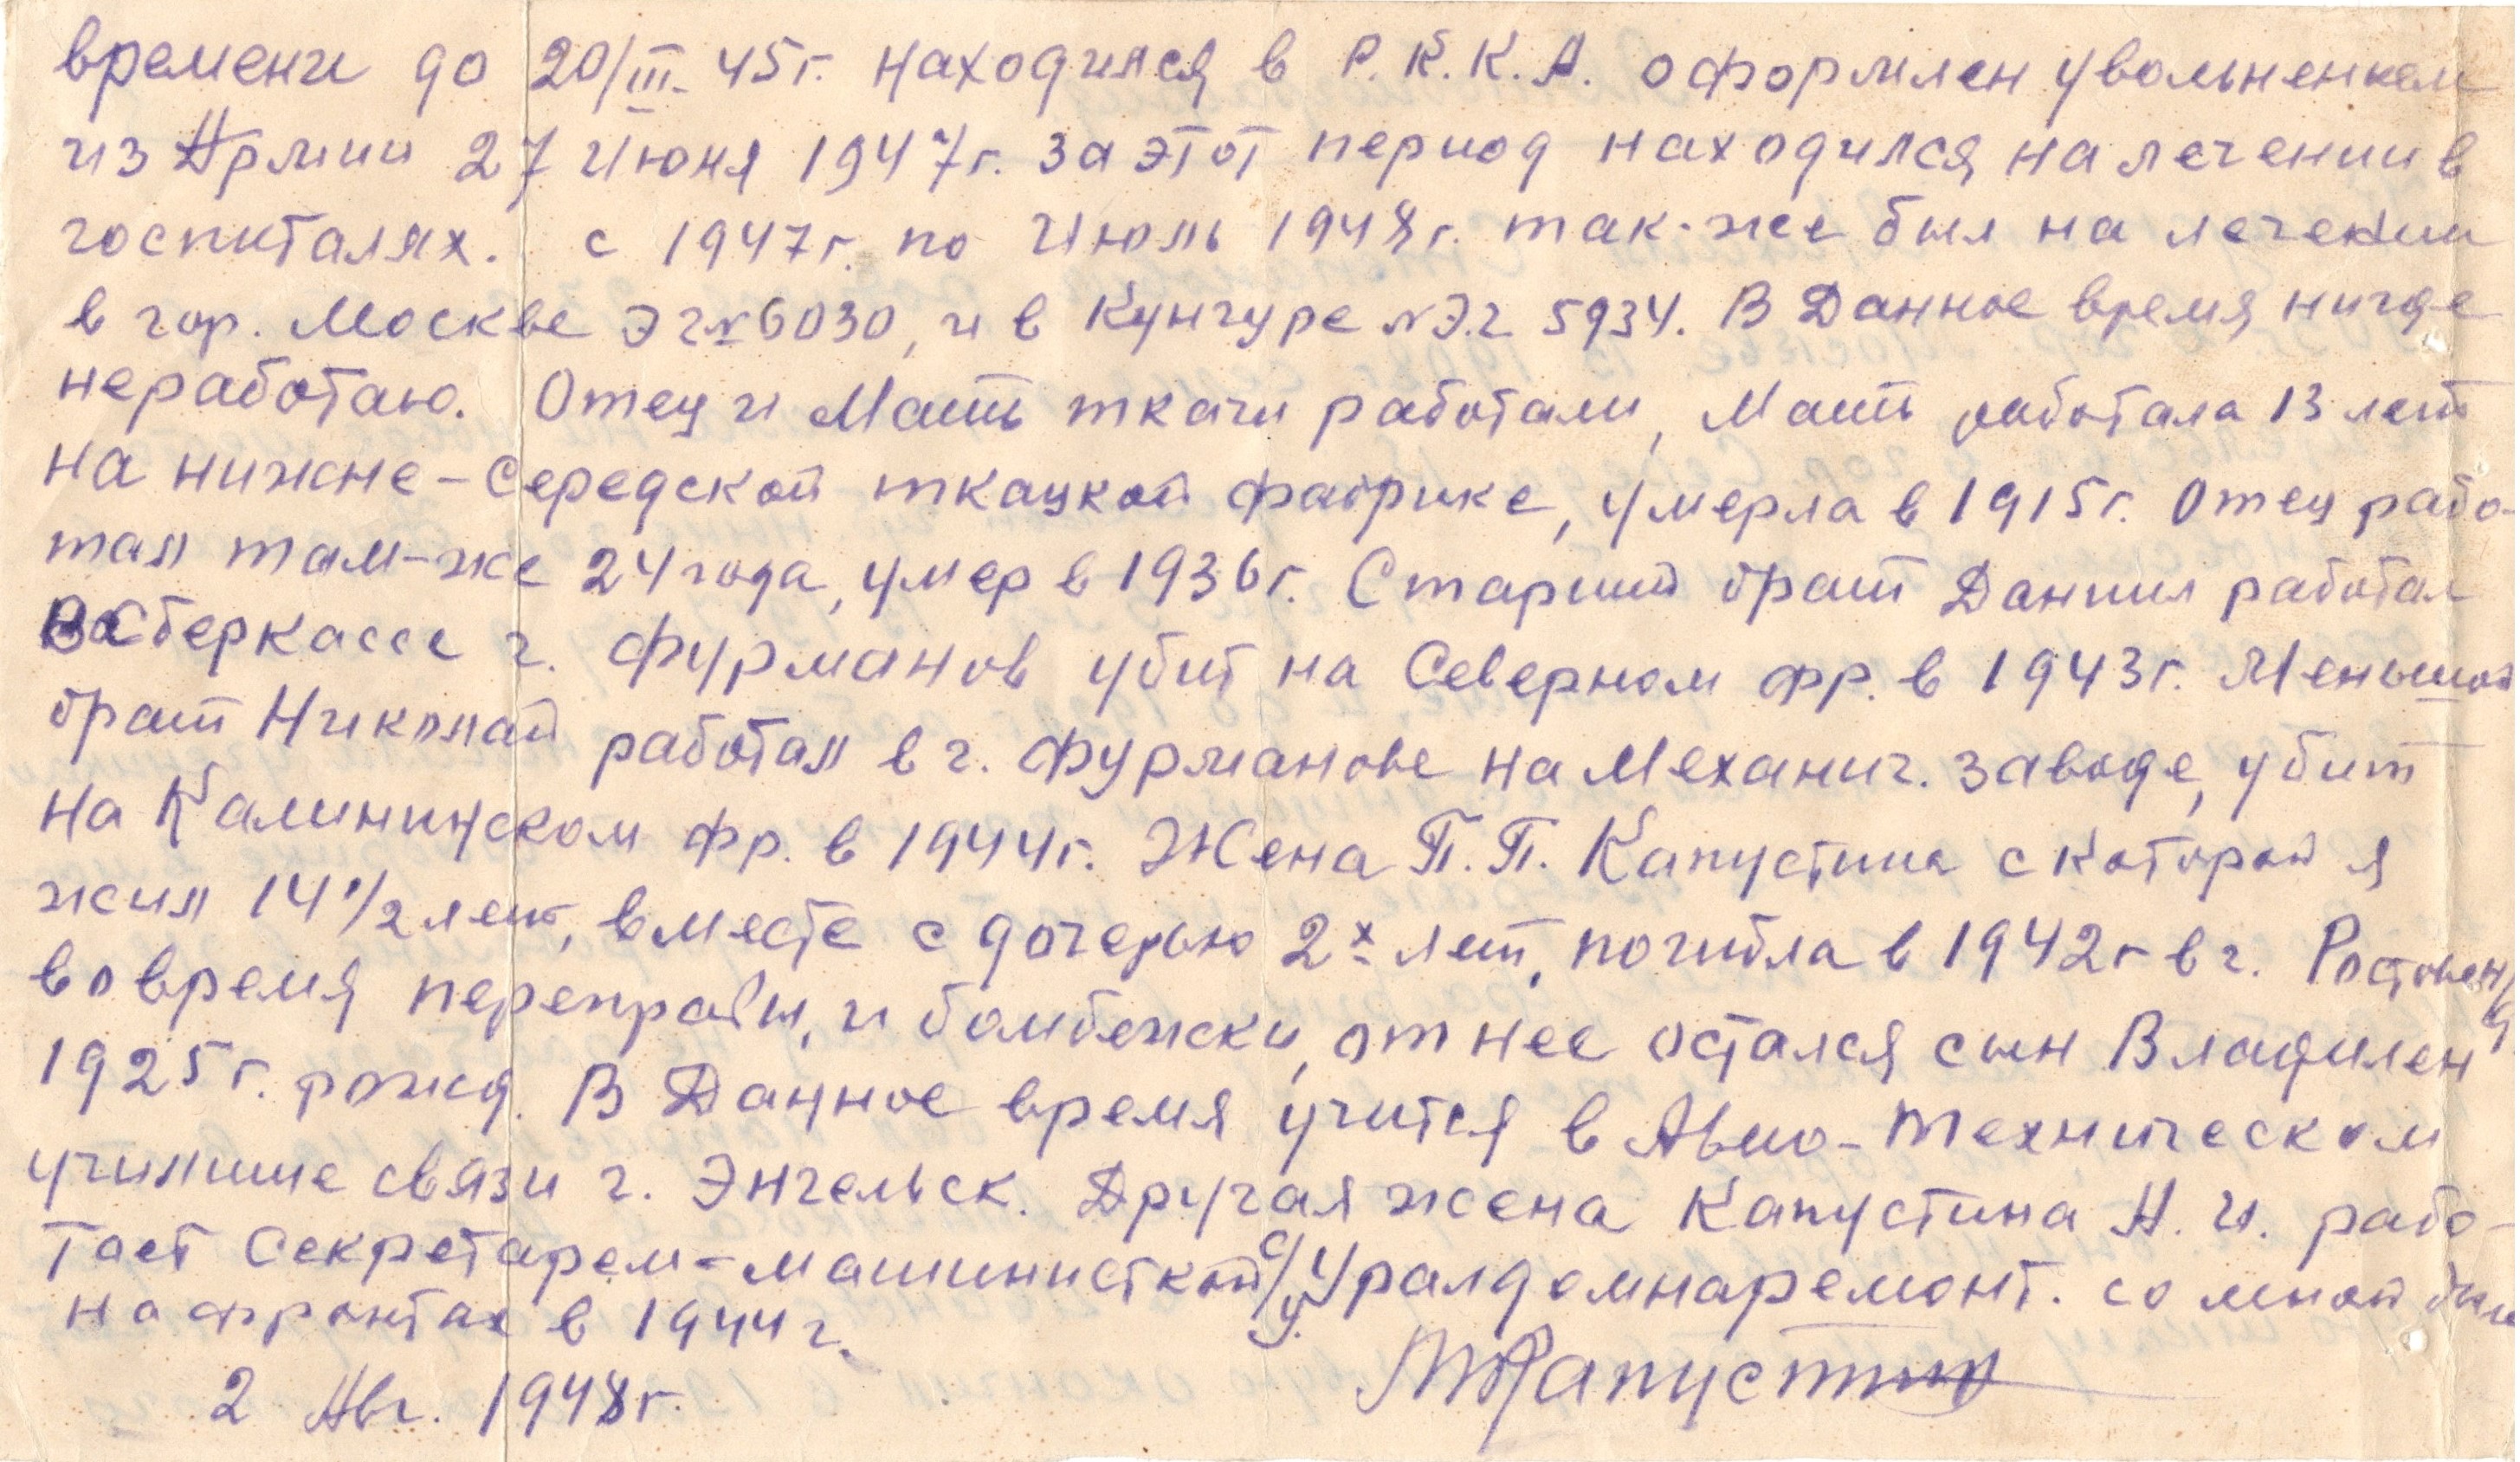 времени до 20/III. 45г. находился в Р.К.К.А. оформлен увольнением
из Армии 27 Июня 1947г. за этот период находился на лечении в
госпиталях. с 1947г. по Июль 1948г. так-же был на лечении
в гор. Москве ЭГ№6030, и в Кунгуре №Э.Г 5934. В Данное время нигде
неработаю. Отец и Мать ткачи работали, Мать работала 13 лет
на нижне-Середской ткацкой фабрике, умерла в 1915г. Отец рабо-
тал там-же 24 года, умер в 1936г. Старший брат Даниил работал
в Сберкассе г. Фурманов убит на Северном фр. в 1943г. Меньшой
брат Николай работал в г. Фурманове на Механич. заводе, убит
на Калининском фр. в 1944г. Жена П.П. Капустина с которой я
жил 14 1/2 лет, вместе с дочерью 2х лет, погибла в 1942г в г. Ростове н/д
во время переправы, и бомбежки, от нее остался сын Владилен
1925г. рожд. В Данное время учится в Авио-Техническом
училище связи г. Энгельск. Другая жена Капустина А. И. рабо-
тает Секретарем-машинисткой с/у. Уралдомнаремонт. со мной была
на фронтах в 1944г.
2 Авг. 1948г. Капустин